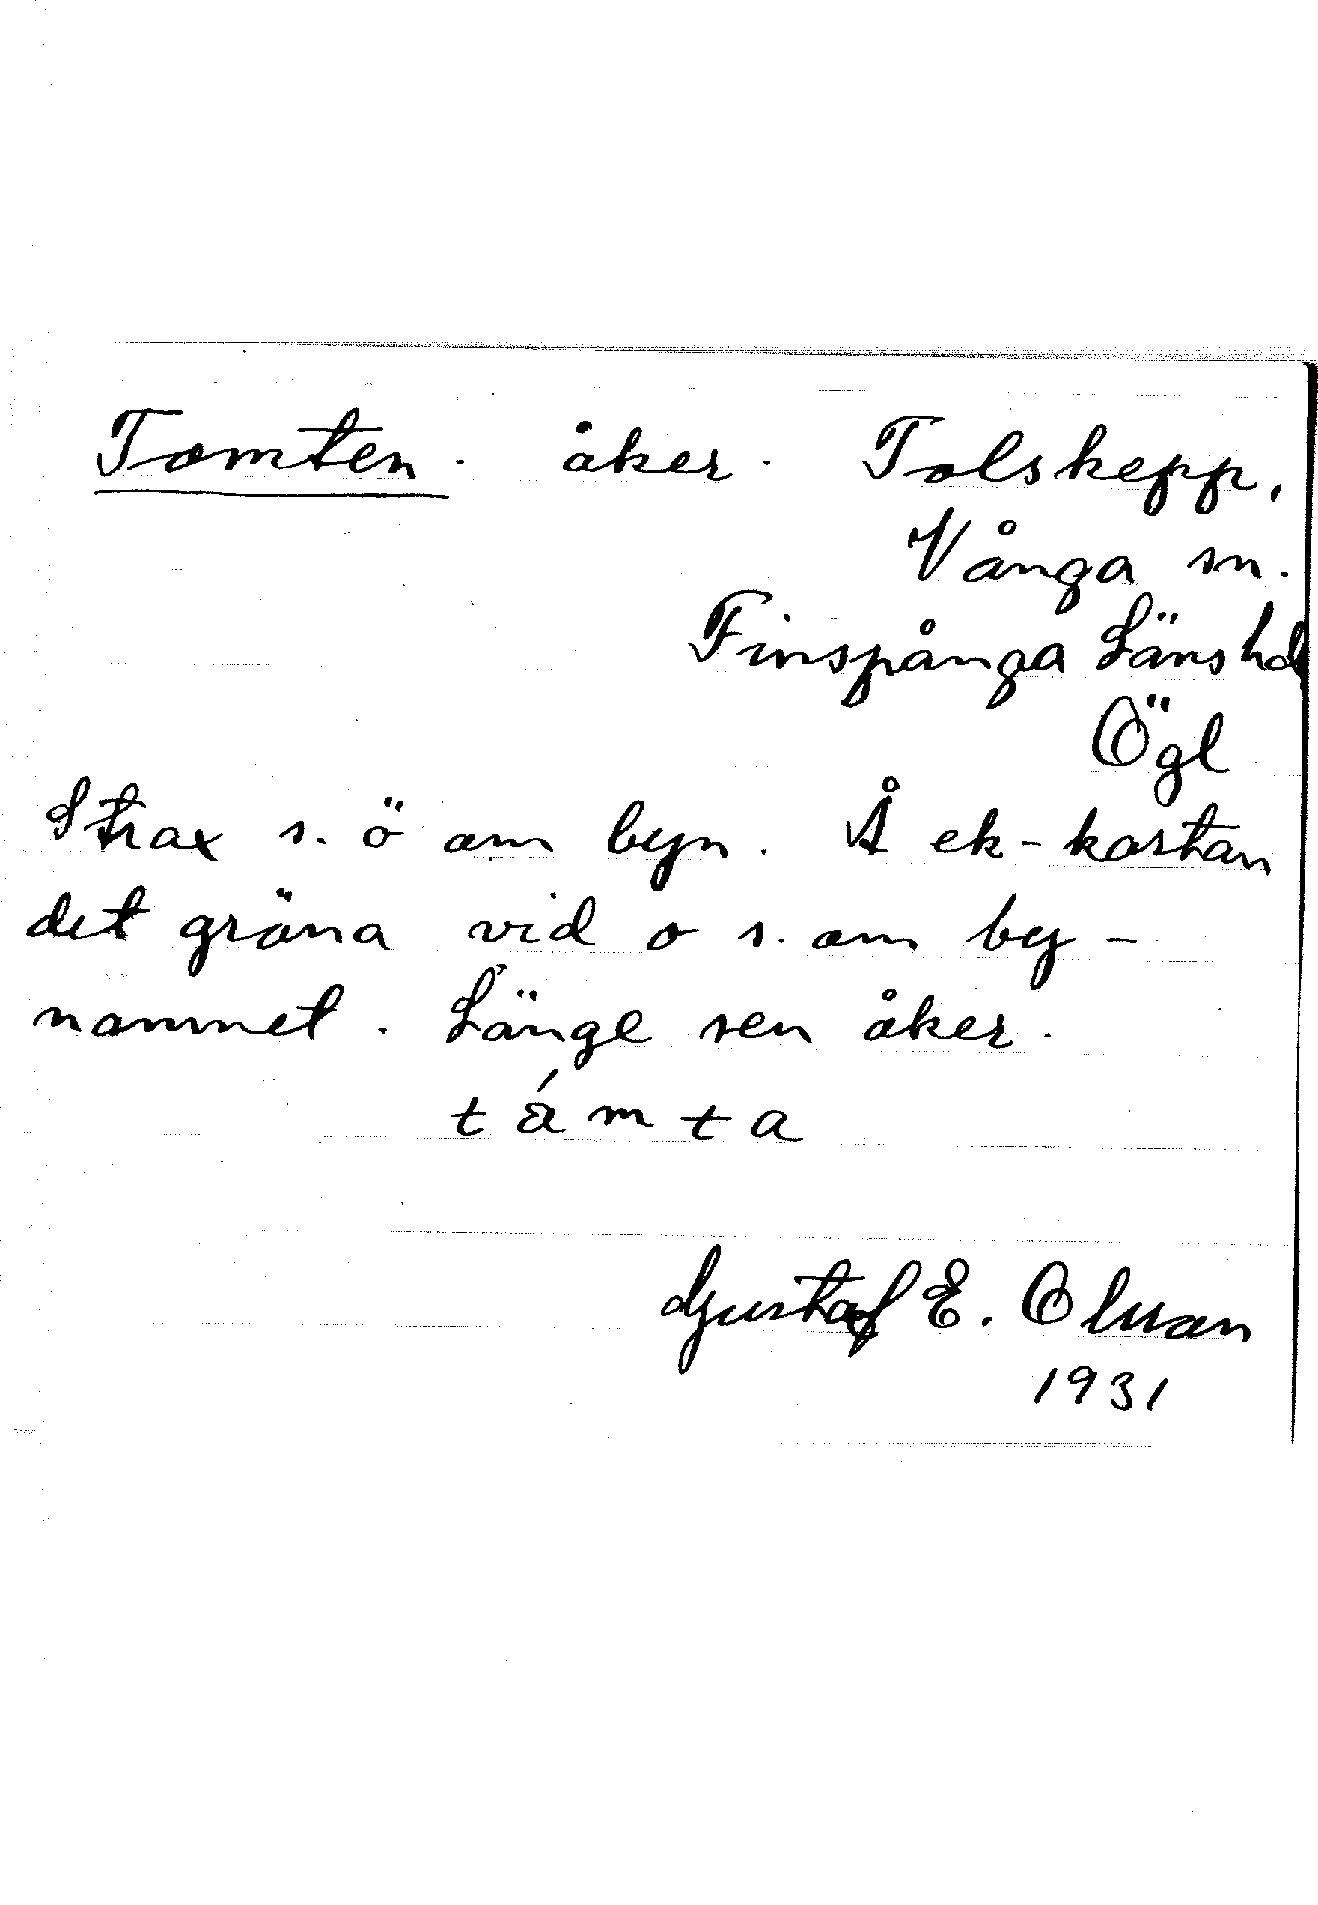 Tomten. åker. Tolskepp,
Vånga sn.
Finspånga Läns hd
Ögl
Strax s. ö om byn. Å ek-kartan
det gröna vid o s. om by-
namnet. Länge sen åker.
támta
Gustaf E. Olsson
1931